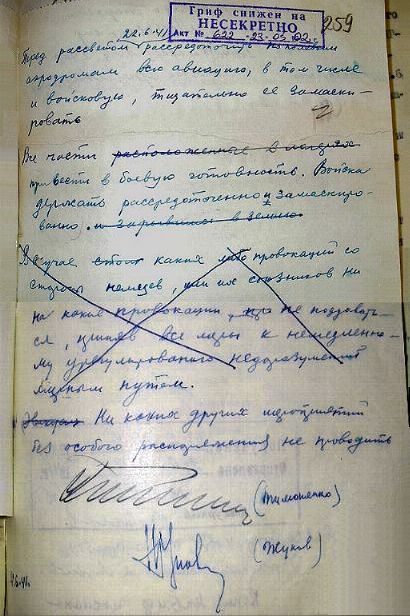 Гриф снижен на
НЕСЕКРЕТНО
Акт № 622 -23.05.02 г.
259
22.6.41
Перед рассветом рассредоточить по полевым
аэродромам всю авиацию, в том числе
и войсковую, тщательно ее замаски-
ровать
Все части расположенные в лагерях
привести в боевую готовность. Войска
держать рассредоточенно и замаскиро-
ванно. и зарывшись в землю
В случае каких либо провокаций со
стороны немцев, или их союзников ни
на какие провокации, не поддавать-
ся, приняв все меры к немедленно-
му урегулированию недоразумений
мирным путем.
Никаких других мероприятий
без особого распоряжения не проводить
(Тимошенко)
(Жуков)